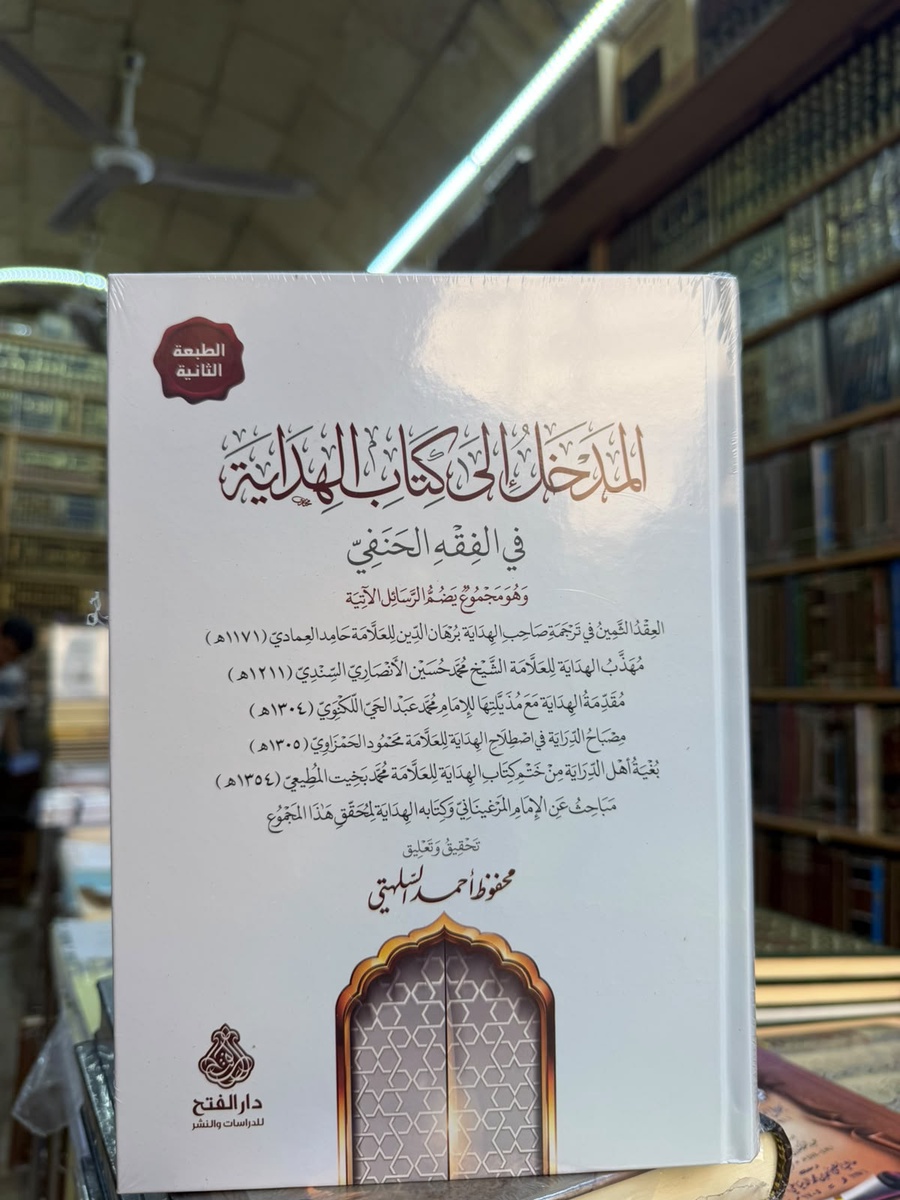 الطبعة
الثانية
المَدخَلُ إلى كِتَابِ الهِدَاية
في الفِقْهِ الحَنَفِيّ
وَهُوَ مَجْمُوعٌ يَضُمُّ الرَّسَائِلَ الآتِيَة
العِقْدُ الثَّمِينُ في تَرْجَمَةِ صَاحِبِ الهِدَايَة بُرْهَان الدِّين لِلعَلَّامَة حَامِد العِمَادِيّ (١١٧١هـ)
مُهَذَّبُ الهِدَايَة لِلعَلَّامَة الشَّيْخ مُحَمَّد حُسَيْن الأَنْصَارِيّ السِّنْدِيّ (١٢١١هـ)
مُقَدِّمَةُ الهِدَايَة مَعَ مُذَيَّلَتِهَا لِلإِمَام مُحَمَّد عَبْد الحَيّ اللَّكْنَوِيّ (١٣٠٤هـ)
مِصْبَاحُ الدِّرَايَة في اصْطِلَاحِ الهِدَايَة لِلعَلَّامَة مَحْمُود الحَمْزَاوِيّ (١٣٠٥هـ)
بُغْيَةُ أَهْلِ الدِّرَايَة مِنْ خَتْمِ كِتَابِ الهِدَايَة لِلعَلَّامَة مُحَمَّد بَخِيت المُطِيعِيّ (١٣٥٤هـ)
مَبَاحِثُ عَنِ الإِمَامِ المَرْغِينَانِيّ وَكِتَابِه الهِدَايَة لِمُحَقِّقِ هَٰذَا المَجْمُوع
تَحْقِيق وَتَعْلِيق
محفوظ أحمد السّلهتي
دار الفتح
للدراسات والنشر